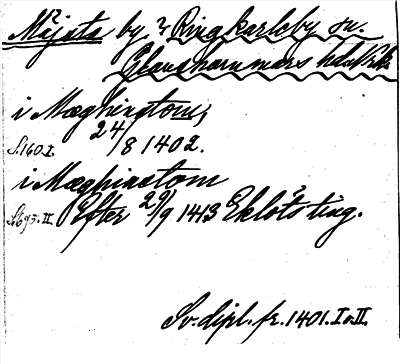 Mässta by ? Ringkarleby sn.
Glanshammars hd Nrk.
i Mæghinstom,
S.160.I. 24/8 1402.
i Mæghinstom
S.695.II. Efter 29/9 1413 Eklöts ting.
Sv. dipl. fr. 1401. I o II.